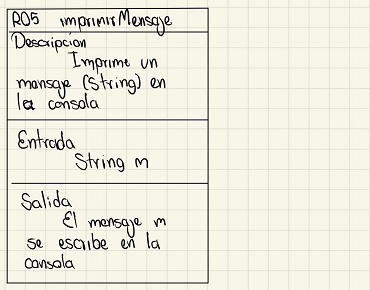 R05 imprimirMensaje
Descripcion
Imprime un
mensaje (String) en
la consola
Entrada
String m
Salida
El mensaje m
se escribe en la
consola